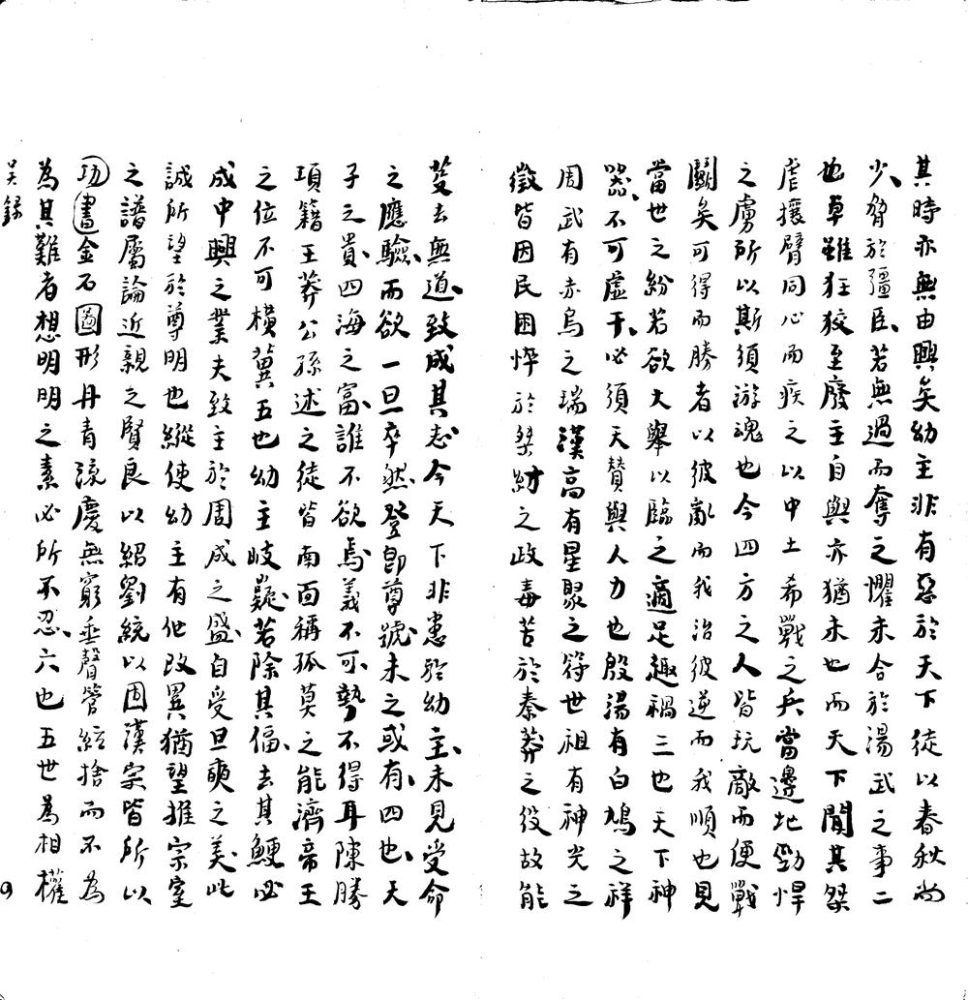 其時亦無由興矣幼主非有惡於天下徒以春秋尚
少脅於彊臣若無過而奪之懼未合於湯武之事二
也卓雖狂狡至廢主自與亦猶未也而天下聞其桀
虐攘臂同心而疾之以中土希戰之兵當邊地勁悍
之虜所以斯須游魂也今四方之人皆玩敵而便戰
鬬矣可得而勝者以彼亂而我治彼逆而我順也見
當世之紛若欲大舉以臨之適足趣禍三也天下神
器不可虛干必須天贊與人力也殷湯有白鳩之祥
周武有赤烏之瑞漢高有星聚之符世祖有神光之
徵皆因民困悴於桀紂之政毒苦於秦莽之役故能
芟去無道致成其志今天下非患於幼主未見受命
之應驗而欲一旦卒然登即尊號未之或有四也天
子之貴四海之富誰不欲焉義不可勢不得耳陳勝
項籍王莽公孫述之徒皆南面稱孤莫之能濟帝王
之位不可橫冀五也幼主岐嶷若除其偪去其鯁必
成中興之業夫致主於周成之盛自受旦奭之美此
誠所望於尊明也縱使幼主有他改異猶望推宗室
之譜屬論近親之賢良以紹劉統以固漢宗皆所以
功書金石圖形丹青流慶無窮垂聲管絃捨而不為
為其難者想明明之素必所不忍六也五世為相權
吳錄
9